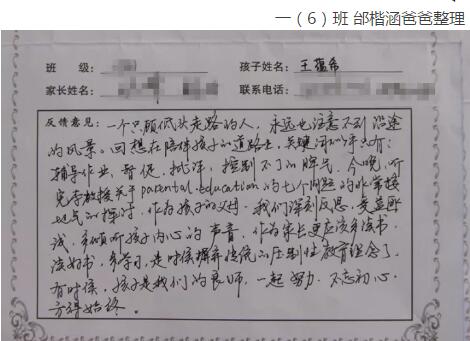 一（6）班 邰楷涵爸爸整理
班 级：
孩子姓名：王蕴希
家长姓名：
联系电话：
反馈意见：一个只顾低头走路的人，永远也注意不到沿途
的风景。回想在陪伴孩子的道路上，关键词似乎只有：
辅导作业、督促、批评、控制不了的脾气。今晚，听
完李教授关于parental education的七个问题的非常接
地气的探讨，作为孩子的父母，我们深刻反思，是应尝
试、多倾听孩子内心的声音，作为家长更应该多读书
读好书，多学习，是时候摒弃传统的压制性教育理念了。
有时候，孩子是我们的良师，一起努力，不忘初心，
方得始终。